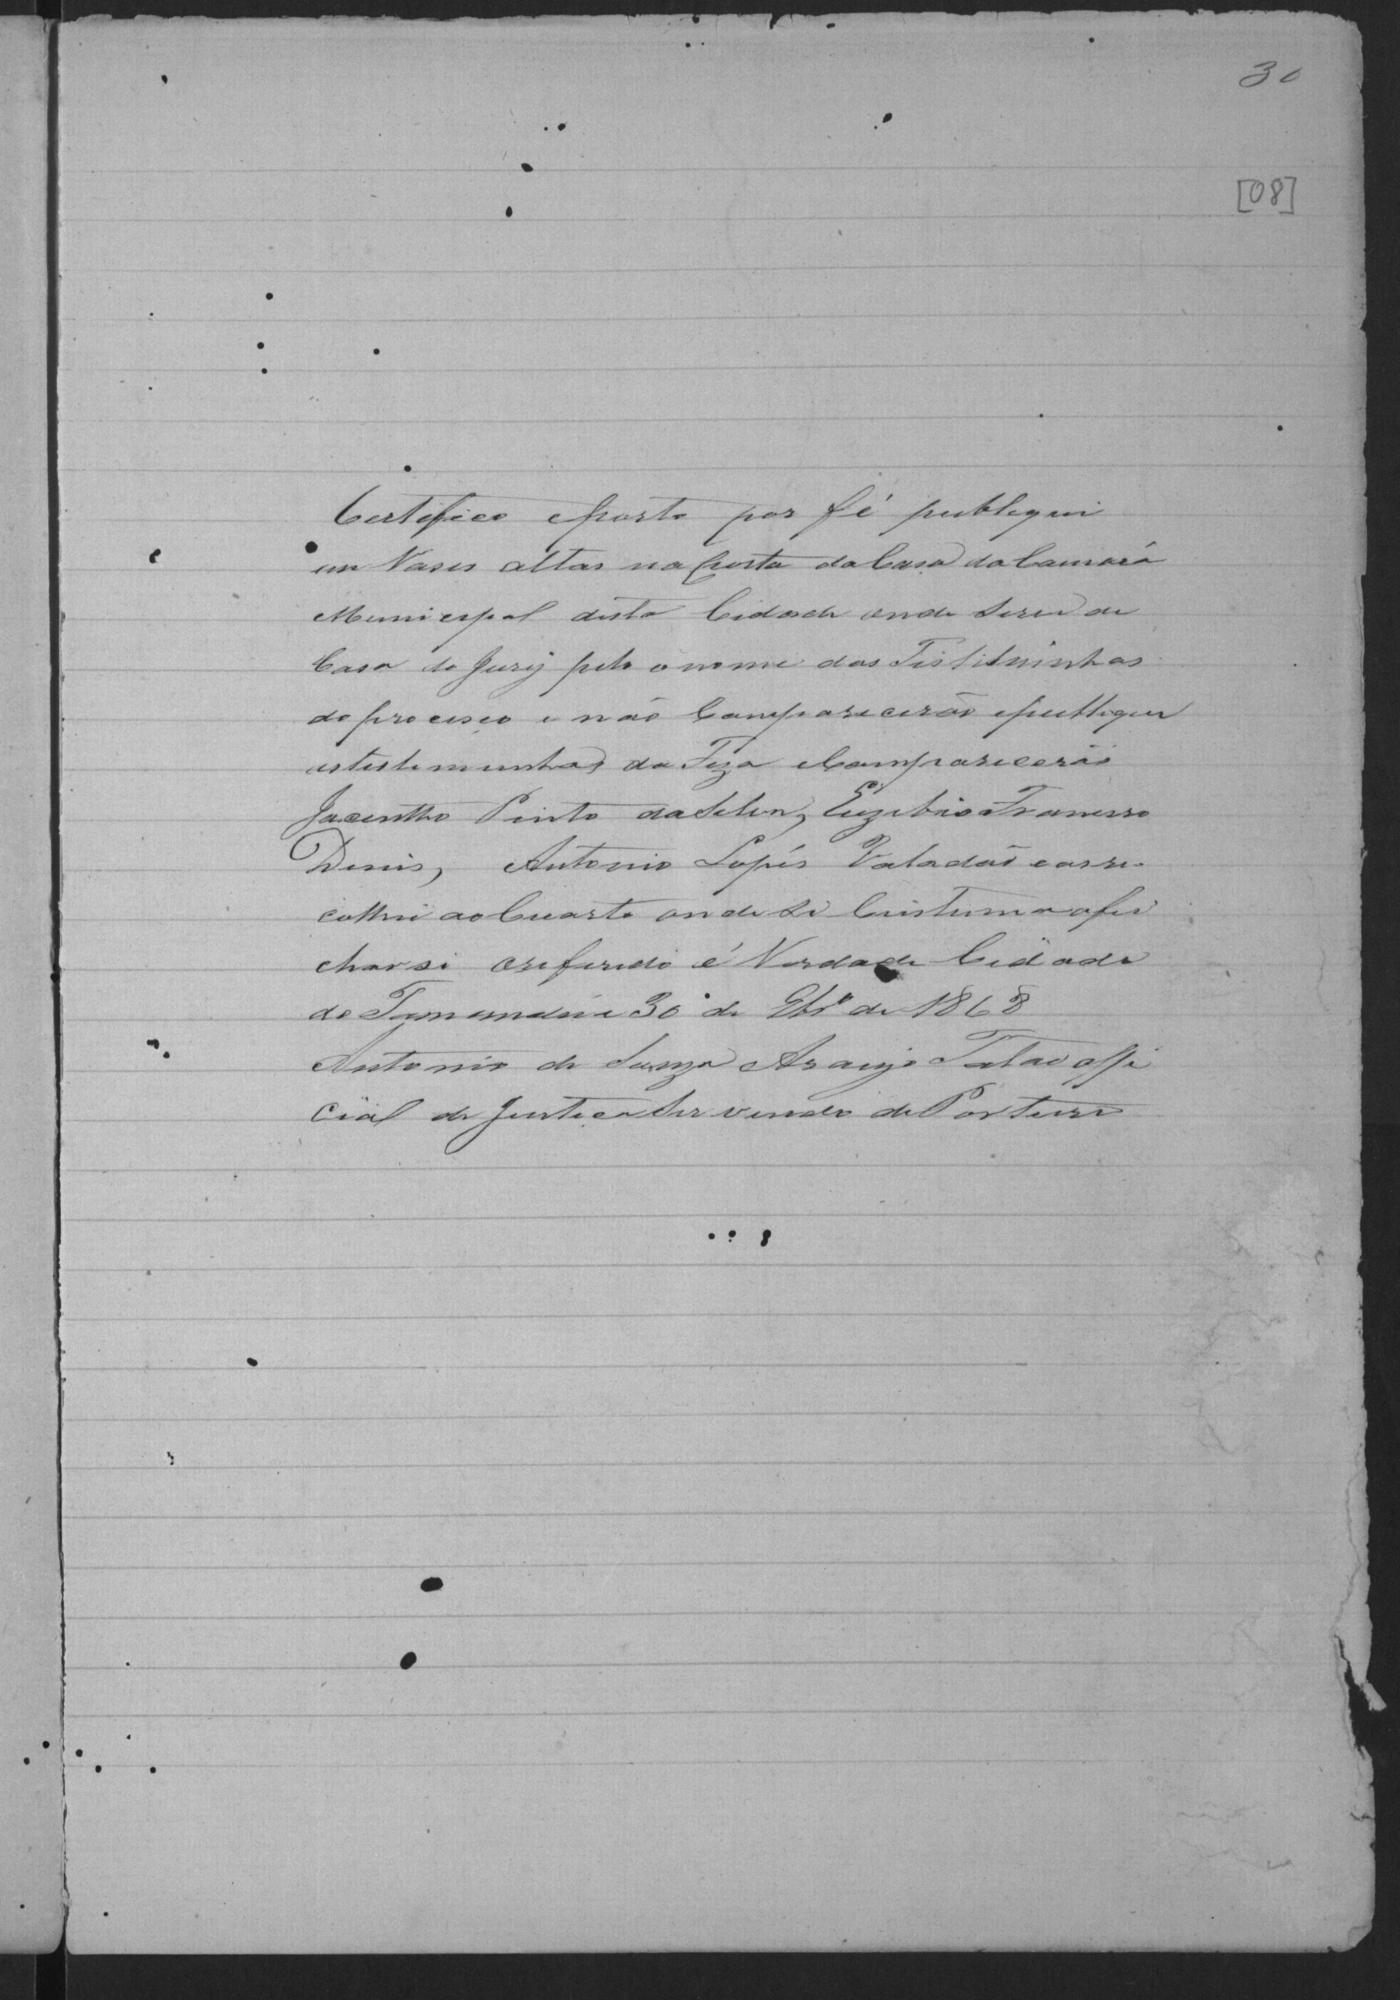 30
[08]
Certifico eporto por fé publiquei
em Vases altas na porta da Casa da Camará
Municipal desta Cidade onde serve de
Casa do Jury pelo o nome das Tistiminhas
do proceço e não Comparecerão epubliquei
astesteminhas da Feza eComparecerão
Jacintho Pinto da Silva, Euzebio Francisco
Denis, Antonio Lopés Valadão earre
colhei ao Cuarto onde se Custuma afei
charsi oreferido é Verdade Cidade
de Tamandúa 30 de 9br.º de 1868
Antonio de Souza Araujo Offi
cial de Justiça Servindo de Porteiro